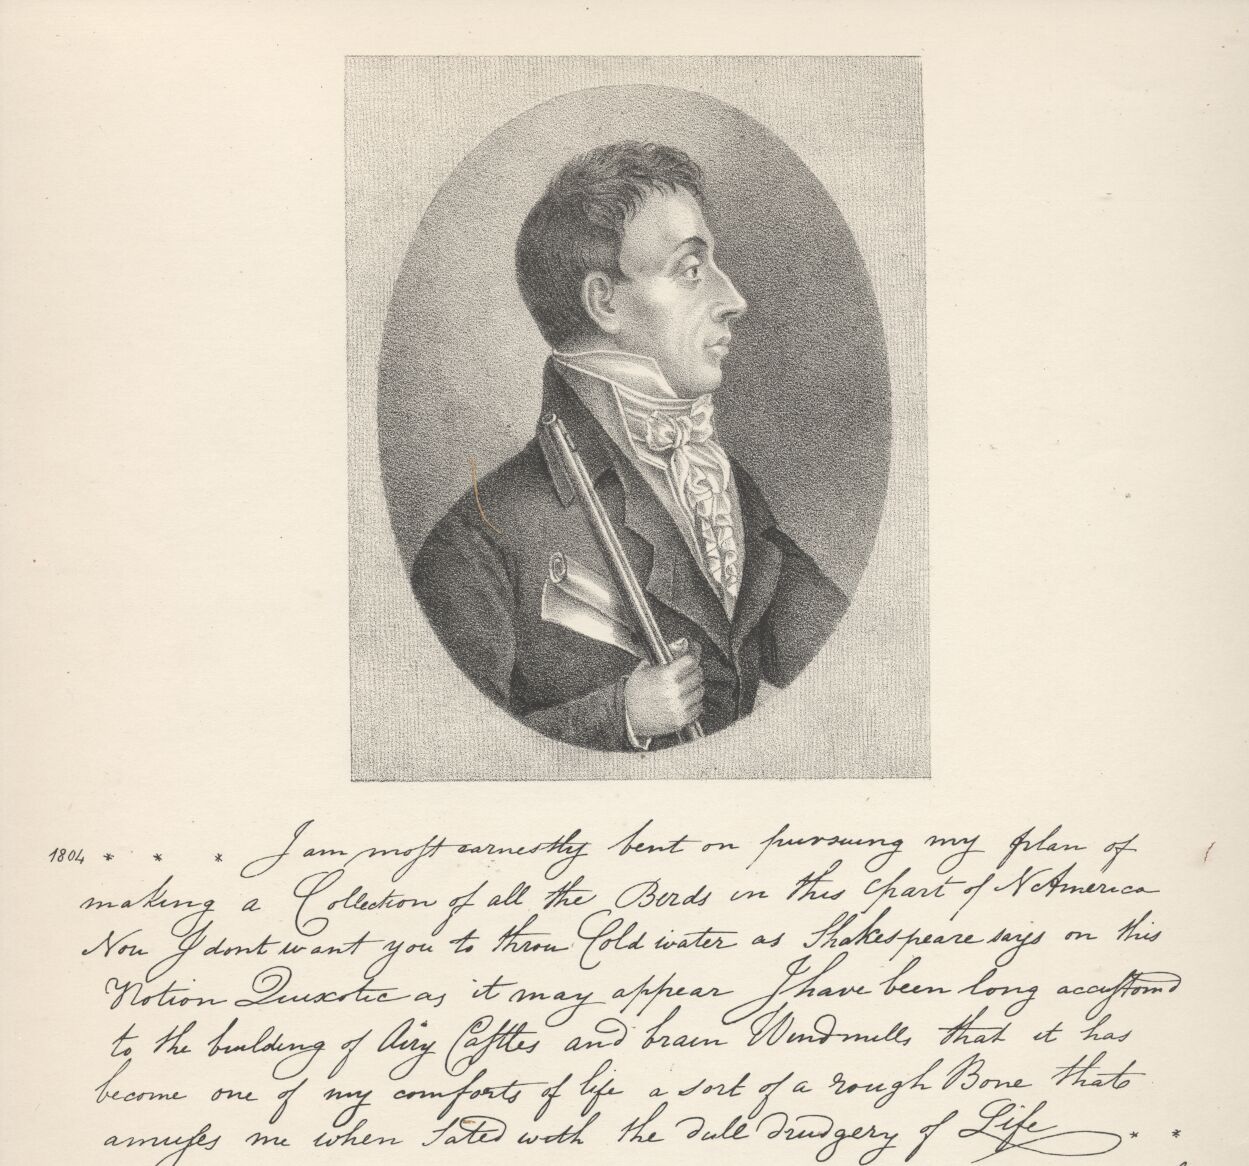 1804 * * * I am most earnestly bent on pursuing my plan of
making a Collection of all the Birds in this part of N America
Now I dont want you to throw Cold water as Shakespeare says on this
Notion Quixotic as it may appear I have been long accustomd
to the building of Airy Castles and brain Windmills that it has
become one of my comforts of life a sort of a rough Bone that
amuses me when Sated with the dull drudgery of Life * *